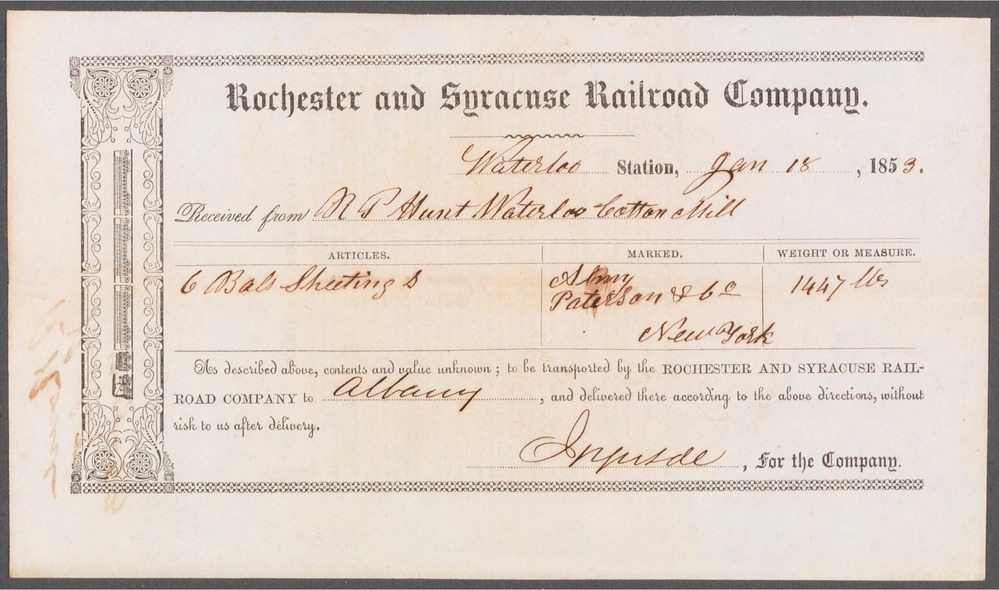 Rochester and Syracuse Railroad Company.
Waterloo Station, Jan 18, 1853.
Received from N P Hunt Waterloo Cotton Mill
ARTICLES. MARKED. WEIGHT OR MEASURE.
6 Bals Sheetings Almy 1447 lbs
Paterson & Co
New York
As described above, contents and value unknown; to be transported by the ROCHESTER AND SYRACUSE RAIL-
ROAD COMPANY to Albany, and delivered there according to the above directions, without
risk to us after delivery.
, For the Company.